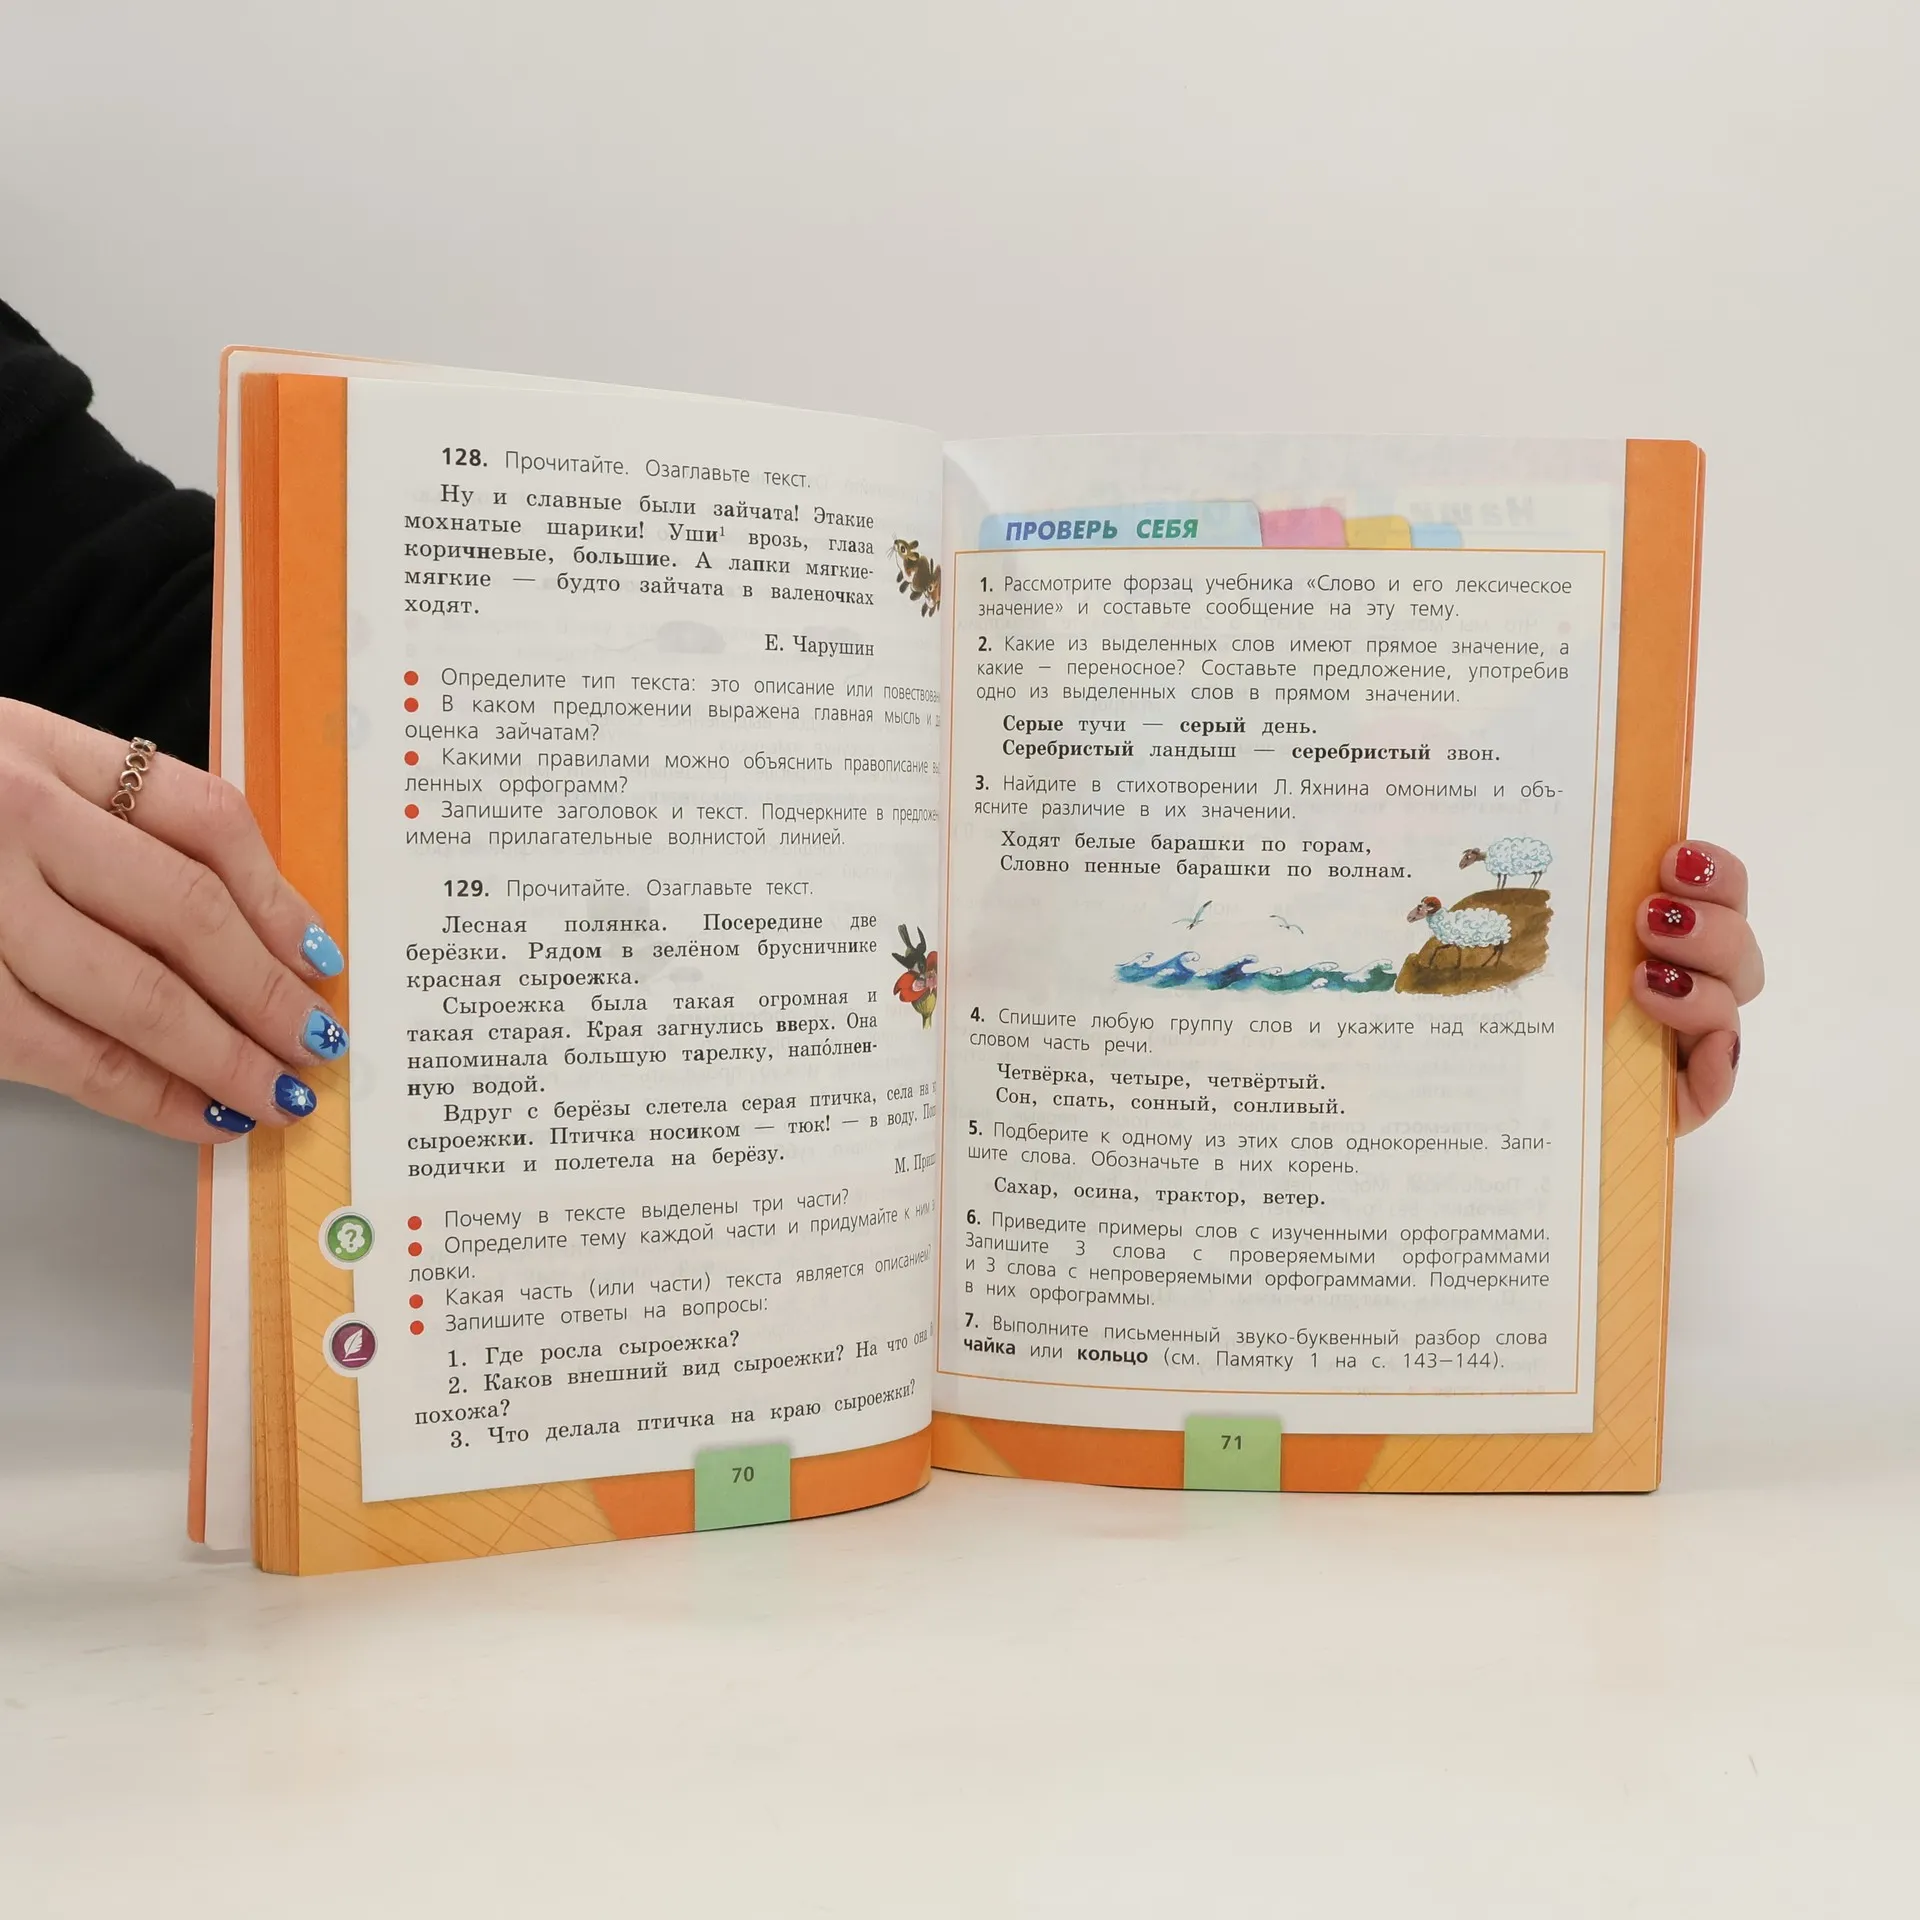 128. Прочитайте. Озаглавьте текст.
Ну и славные были зайчата! Этакие
мохнатые шарики! Уши¹ врозь, глаза
коричневые, большие. А лапки мягкие-
мягкие — будто зайчата в валеночках
ходят.
Е. Чарушин
Определите тип текста: это описание или
В каком предложении выражена главная мысль и
оценка зайчатам?
Какими правилами можно объяснить правописание
ленных орфограмм?
Запишите заголовок и текст. Подчеркните в
имена прилагательные волнистой линией.
129. Прочитайте. Озаглавьте текст.
Лесная полянка. Посередине две
берёзки. Рядом в зелёном брусничнике
красная сыроежка.
Сыроежка была такая огромная и
такая старая. Края загнулись вверх. Она
напоминала большую тарелку, напо́лнен-
ную водой.
Вдруг с берёзы слетела серая птичка, села на
сыроежки. Птичка носиком — тюк! — в воду.
водички и полетела на берёзу.
М.
Почему в тексте выделены три части?
Определите тему каждой части и придумайте к ним
ловки.
Какая часть (или части) текста является описанием?
Запишите ответы на вопросы:
1. Где росла сыроежка?
2. Каков внешний вид сыроежки? На что она
похожа?
3. Что делала птичка на краю сыроежки?
70
ПРОВЕРЬ СЕБЯ
1. Рассмотрите форзац учебника «Слово и его лексическое
значение» и составьте сообщение на эту тему.
2. Какие из выделенных слов имеют прямое значение, а
какие – переносное? Составьте предложение, употребив
одно из выделенных слов в прямом значении.
Серые тучи — серый день.
Серебристый ландыш — серебристый звон.
3. Найдите в стихотворении Л. Яхнина омонимы и объ-
ясните различие в их значении.
Ходят белые барашки по горам,
Словно пенные барашки по волнам.
4. Спишите любую группу слов и укажите над каждым
словом часть речи.
Четвёрка, четыре, четвёртый.
Сон, спать, сонный, сонливый.
5. Подберите к одному из этих слов однокоренные. Запи-
шите слова. Обозначьте в них корень.
Сахар, осина, трактор, ветер.
6. Приведите примеры слов с изученными орфограммами.
Запишите 3 слова с проверяемыми орфограммами
и 3 слова с непроверяемыми орфограммами. Подчеркните
в них орфограммы.
7. Выполните письменный звуко-буквенный разбор слова
чайка или кольцо (см. Памятку 1 на с. 143–144).
71